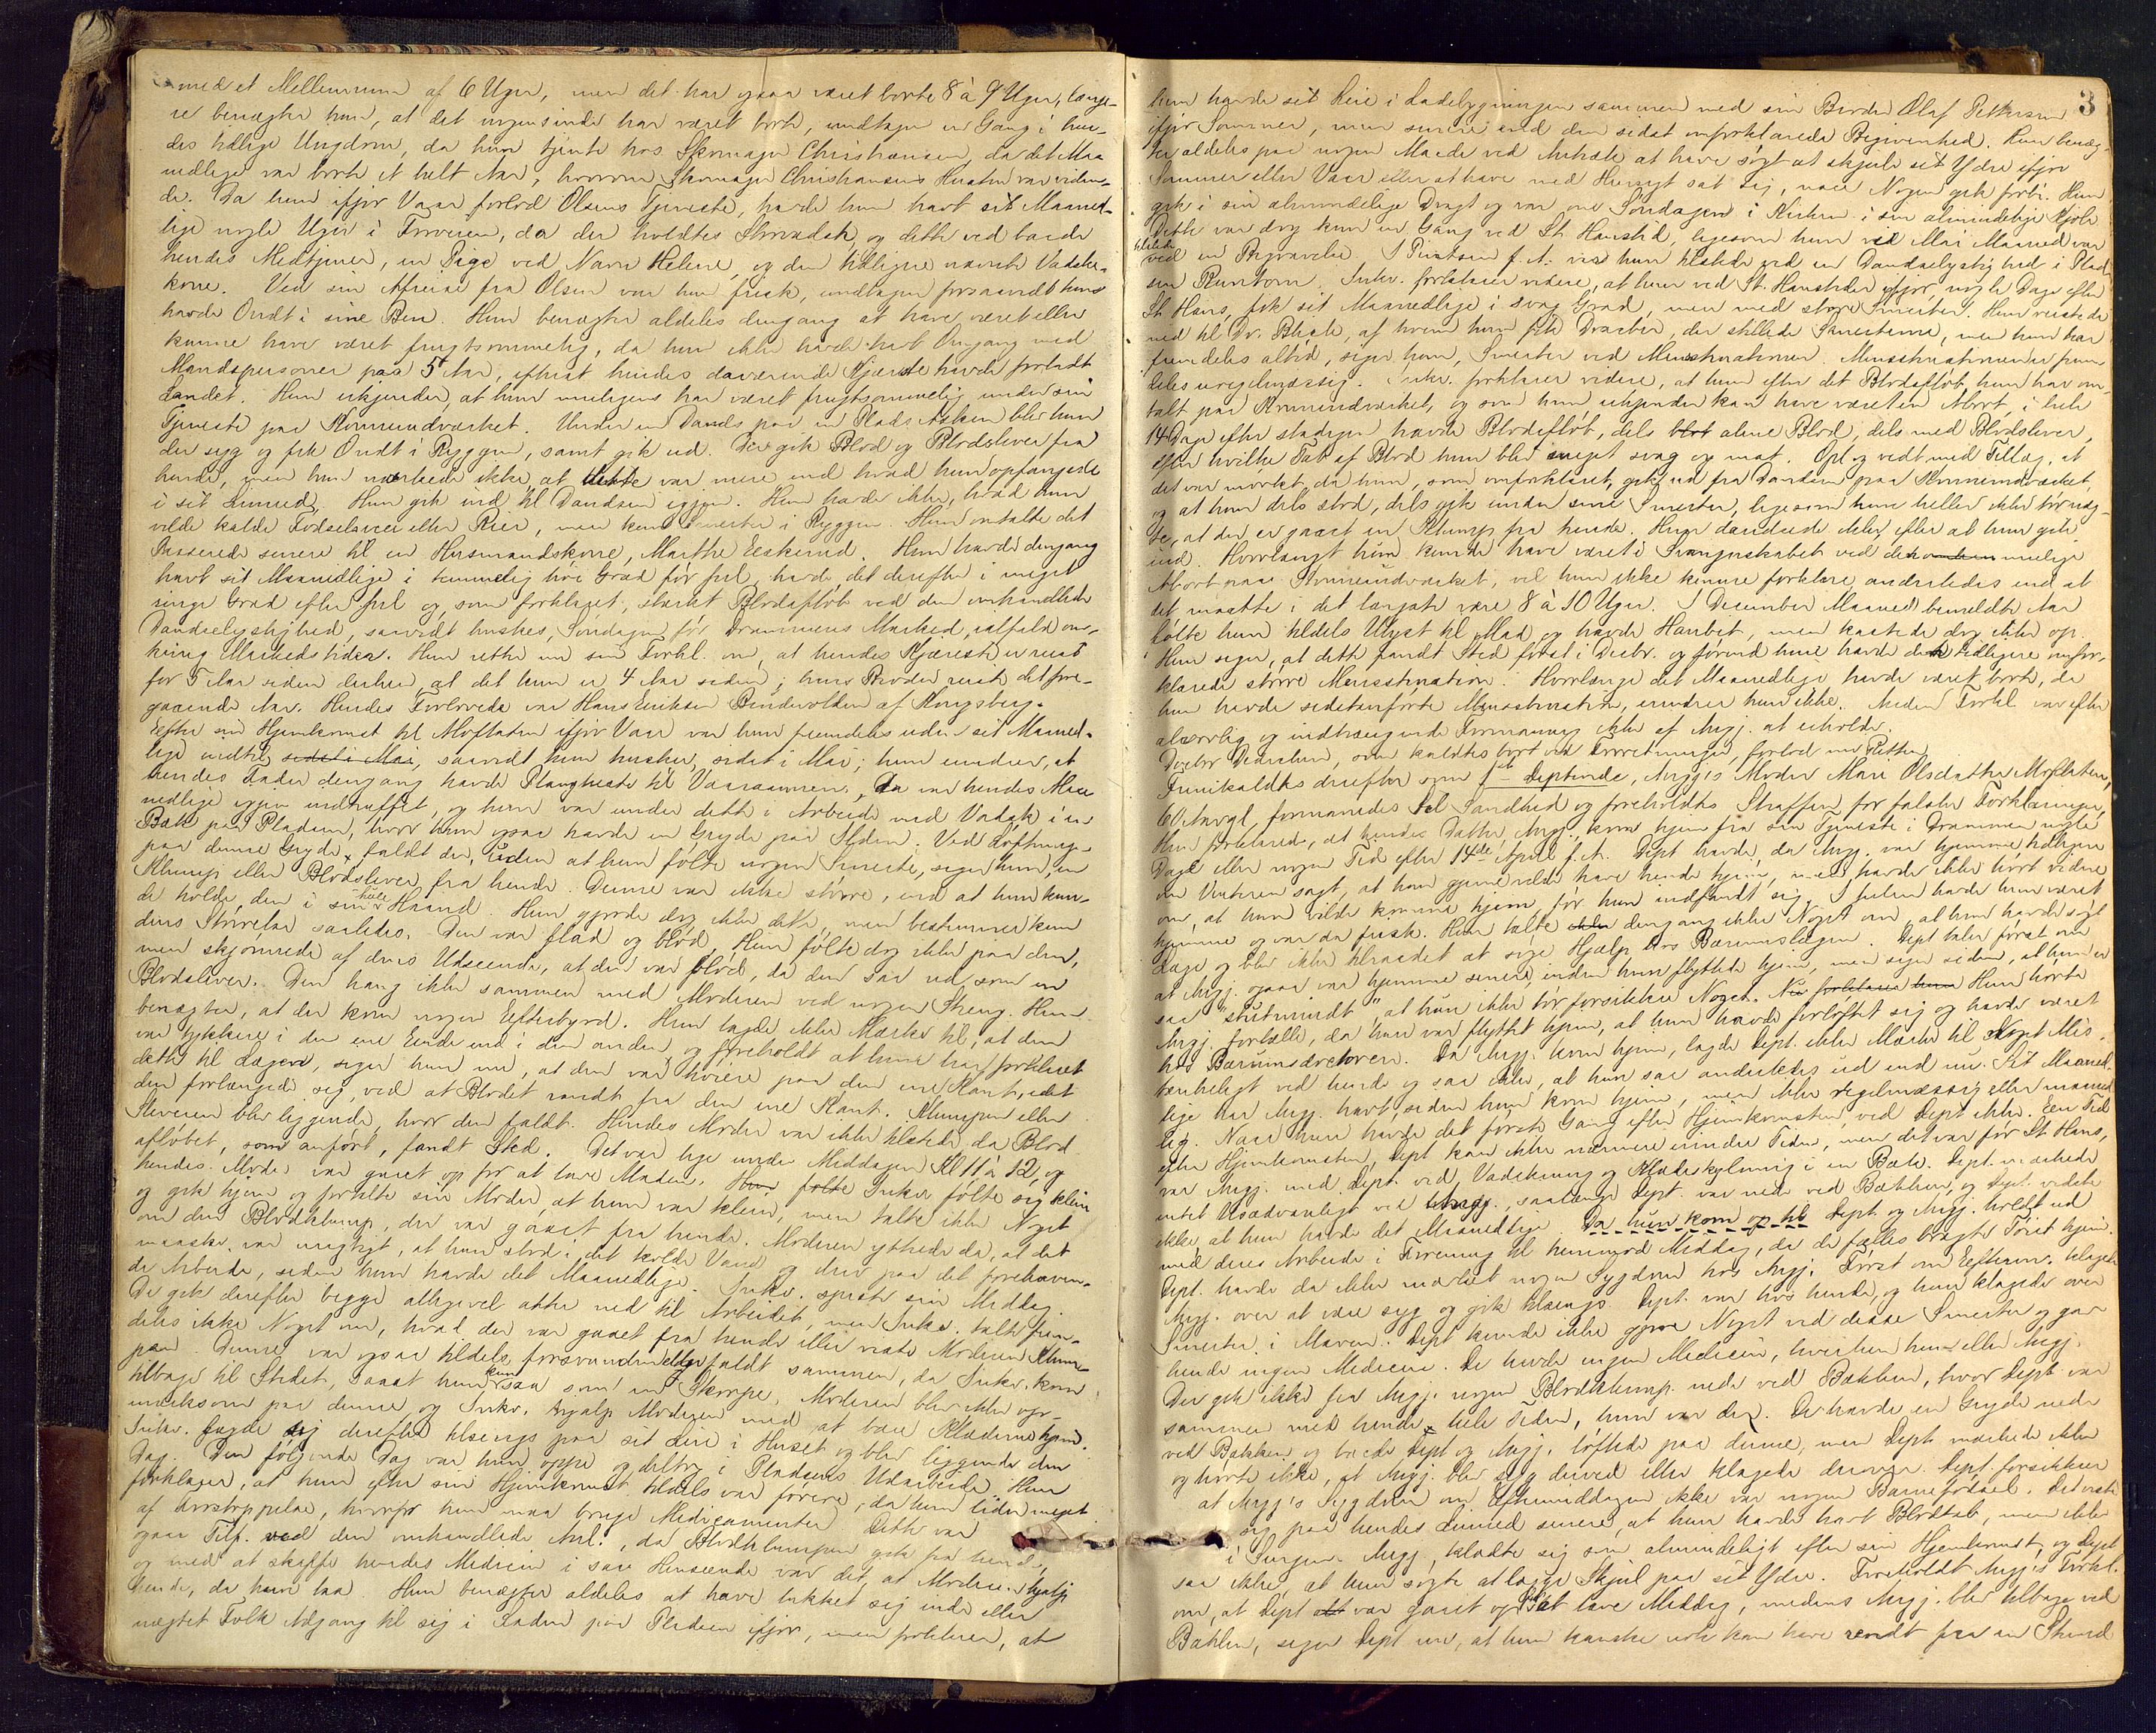 med et Mellemrum af 6 Uger, men det har ogsaa været borte 8 à 9 Uger, længe-
re benægter hun, at det nogensinde har været borte, undtagen en Gang i hen-
des tidlige Ungdom, da hun tjente hos Skomager Christiansen, da det Maa-
nedlige var borte et helt Aar, hvorom Skomager Christiansens Hustru var viden-
de. Da hun ifjor Vaar forlod Olsens Tjeneste, havde hun havt sit Maaned-
lige nogle Uger i Forveien, da der holdtes Storvadsk, og dette ved baade
hendes Medtjener, en Pige ved Navn Helene, og den tidligere nævnte Vadske-
kone. Ved sin Afreise fra Olsen var hun frisk, undtagen forsaavidt hun
havde Ondt i sine Ben. Hun benægter aldeles dengang at have været eller
kunne have været frugtsommelig, da hun ikke havde havt Omgang med
Mandspersoner paa 5 Aar, efterat hendes daværende Kjæreste havde forladt
Landet. Hun erkjender, at hun muligens har været frugtsommelig under sin
Tjeneste paa Kommundværket. Under en Dands paa en Plads Asken blev hun
der syg og fik Ondt i Ryggen, samt gik ud. Der gik Blod og Blodslever fra
hende, men hun mærkede ikke, at dette var mere end hvad hun opfangede
i sit Linned. Hun gik ind til Dandsen igjen. Hun havde ikke, hvad hun
vilde kalde Fødselsveer eller Rier, men kun Smerter i Ryggen. Hun omtalte det
Passerede senere til en Husmandskone, Marthe Eeskerud. Hun havde dengang
havt sit Maanedlige i temmelig høi Grad før Jul, havde det derefter i meget
ringe Grad efter Jul og, som forklaret, stærkt Blodafløb ved den omhandlede
Dandselystighed, saavidt huskes, Søndagen før Drammens Marked, ialfald om-
kring Markedstiden. Hun retter nu sin Forkl. om, at hendes Kjæreste er reist
for 5 Aar siden derhen, at det kun er 4 Aar siden; hans Broder reiste det fore-
gaaende Aar. Hendes Forlovede var Hans Eriksen Bindervolden af Kongsberg.
Efter sin Hjemkomst til Mofladten ifjor Vaar var hun fremdeles uden sit Maaned-
lige indtil sidst i Mai, saavidt hun husker, sidst i Mai; hun erindrer, at
hendes Fader dengang havde Plougheste til Vaaraannen. Da var hendes Maa-
nedlige igjen indtruffet, og hun var under dette i Arbeide med Vadsk i en
Bæk paa Pladsen, hvor hun ogsaa havde en Gryde paa Ilden. Ved Løftning
paa denne Gryde, faldt der, uden at hun følte nogen Smerte, siger hun, en
Klump eller Blodslever fra hende. Denne var ikke større, end at hun kun-
de holde den i sin hule Haand. Hun gjorde dog ikke dette, men bestemmer kun
dens Størrelse saaledes. Den var flad og blød. Hun følte dog ikke paa den,
men skjønnede af dens Udseende, at den var blød, da den saa ud som en
Blodslever. Den hang ikke sammen med Moderen ved nogen Streng. Hun
benægter, at der kom nogen Efterbyrd. Hun lagde ikke Mærke til, at den
var tykkere i den ene Ende end i den anden, og foreholdt at hun har forklaret
dette til Lægen, siger hun nu, at den var høiere paa den ene Kant, idet
den forlængede sig, ved at Blodet randt fra den ene Kant. Klumpen eller
Sleveren blev liggende, hvor den faldt. Hendes Moder var ikke tilstede, da Blod-
afløbet, som anført, fandt Sted. Det var lige under Middagen Kl 11 à 12, og
hendes Moder var gaaet op for at lave Maden. Hun følte Inkv. følte sig klein
og gik hjem og fortalte sin Moder, at hun var klein, men talte ikke Noget
om den Blodklump, der var gaaet fra hende. Moderen yttrede da, at det
maaske var urigtigt, at hun stod i det kolde Vand og drev paa det forehaven-
de Arbeide, siden hun havde det Maanedlige. Inkv. spiste sin Middag.
De gik derefter begge alligevel atter ned til Arbeidet, men Inkv. talte frem-
deles ikke Noget om, hvad der var gaaet fra hende eller viste Moderen Klum-
pen. Denne var ogsaa tildels forsvunden eller faldt sammen, da Inkv. kom
tilbage til Stedet, saaat hun kun saa som en Skorpe. Moderen blev ikke op-
mærksom paa denne og Inkv. hjalp Moderen med at bære Klæderne hjem.
Inkv. lagde sig derefter tilsengs paa sit Leie i Huset og blev liggende den
Dag. Den følgende Dag var hun oppe og deltog i Pladsens Udarbeide. Hun
forklarer, at hun efter sin Hjemkomst tildels var førere, da hun lider meget
af Forstoppelse, hvorfor hun maa bruge Medicamenter. Dette var
ogsaa Tilf. ved den omhandlede Anl., da Blodklumpen gik fra hende,
og med at skaffe hendes Medicin i saa Henseende var det, at Moderen hjalp
hende, da hun laa. Hun benægter aldeles at have lukket sig inde eller
nægtet Folk Adgang til sig i Laden paa Pladsen ifjor, men forklarer, at
3
hun havde sit Leie i Ladebygningen sammen med sin Broder Olaf Pettersen
ifjor Sommer, men senere end den sidst omforklarede Begivenhed. Hun benæg-
ter aldeles paa nogen Maade ved Antræk at have søgt at skjule sit Ydre ifjor
Sommer eller Vaar eller at have med Hensyn sat sig, naar Nogen gik forbi. Hun
gik i sin almindelige Dragt og var om Søndagen i Kirken i sin almindelige Kjole.
Dette var dog kun en Gang ved St. Hanstid, ligesom hun ved Mai Maaned var
tilstede ved en Begravelse. I Pintsen f. A. var hun tilstede ved en Dandselystighed i Plad-
sen Runtorn. Inkv. forklarer videre, at hun ved St. Hanstider ifjor, nogle Dage efter
St. Hans, fik sit Maanedlige i svag Grad, men med store Smerter. Hun reiste da
ned til Dr. Blich, af hvem hun fik Draaber, der stillede Smerterne, men hun har
fremdeles altid, siger hun, Smerter ved Menstruationen. Menstruationen er frem-
deles uregelmæssig. Inkv. forklarer videre, at hun efter det Blodafløb, hun har om-
talt paa Kommundværket, og som hun erkjender kan have været en Abort, i hele
14 Dage efter stadigen havde Blodafløb, dels blot alene Blod, dels med Blodslever,
efter hvilke Tab af Blod hun blev meget svag og mat. Opl. og vedt. med Tillæg, at
det var mørkt, da hun, som omforklaret, gik ud fra Dandsen paa Kommundværket,
og at hun dels stod, dels gik under sine Smerter, ligesom hun heller ikke tør næg-
te, at der er gaaet en Klump fra hende. Hun dandsede ikke, efter at hun gik
ind. Hvorlangt hun kunde have været i Svangerskabet ved den mulige
Abort paa Kommundværket, vil hun ikke kunne forklare anderledes end at
det maatte i det længste være 8 à 10 Uger. I December Maaned bemeldte Aar
følte hun tildels Ulyst til Mad og havde Hambet, men kastede dog ikke op.
Hun siger, at dette fandt Sted først i Decbr. og førend hun havde den tidligere omfor-
klarede større Menstruation. Hvorlænge det Maanedlige havde været borte, da
hun havde sidstanførte Menstruation, erindrer hun ikke. Anden Forkl. var efter
alvorlig og indtrængende Formaning ikke af Angj. at erholde.
Doctor Dedichen, som kaldtes bort ved Forretninger, forlod nu Retten.
Fremkaldtes derefter som 1ste Deponende, Angj's Moder Mari Olsdatter Mofladten,
60 Aar gl., formanedes til Sandhed og foreholdtes Straffen for falske Forklaringer,
Hun forklarede, at hendes Datter, Angj. kom hjem fra sin Tjeneste i Drammen nogle
Dage eller nogen Tid efter 14de April f. A. Dept. havde, da Angj. var hjemme tidligere
om Vinteren sagt, at hun gjerne vilde have hende hjem, men havde ikke hørt videre
om, at hun vilde komme hjem, før hun indfandt sig. I Julen havde hun været
hjemme og var da frisk. Hun talte dengang ikke Noget om, at hun havde søgt
Læge og blev ikke tilraadet at søge Hjælp hos Bærumslægen. Dept. taler først om
at Angj. ogsaa var hjemme senere, inden hun flyttede hjem, men siger siden, at hun er
saa "stutmindt", at hun ikke tør forsikkre Noget. Nu forklarer hun Hun hørte
Angj. fortælle, da hun var flyttet hjem, at hun havde forløftet sig og havde været
hos Bærumsdoctoren. Da Angj. kom hjem, lagde Dept. ikke Mærke til Noget Mis-
tænkeligt ved hende og saa ikke, at hun saa anderledes ud end nu. Sit Maaned-
lige har Angj. havt, siden hun kom hjem, men ikke regelmæssig eller maaned-
lig. Naar hun havde det første Gang efter Hjemkomsten, ved Dept. ikke. Een Tid
efter Hjemkomsten, Dept. kan ikke nærmere erindre Tiden, men det var før St. Hans,
var Angj. med Dept. ved Vadskning og Klædeskylning i en Bæk. Dept. mærkede
intet Usædvanligt ved Angj., saalænge Dept. var nede ved Bækken, og Dept. vidste
ikke, at hun havde det Maanedlige. Da hun kom op til Dept. og Angj. holdt ud
med deres Arbeide i Forening til henimod Middag, da de fælles bragte Tøiet hjem.
Dept. havde da ikke mærket nogen Sygdom hos Angj. Først om Efterm. klagede
Angj. over at være syg og gik tilsengs. Dept. var hos hende, og hun klagede over
Smerter i Maven. Dept. kunde ikke gjøre Noget ved disse Smerter og gav
hende ingen Medicin. De havde ingen Medicin, hverken hun eller Angj.
Der gik ikke fra Angj. nogen Blodklump nede ved Bækken, hvor Dept. var
sammen med hende hele Tiden, hun var der. De havde en Gryde nede
ved Bækken og baade Dept. og Angj. løftede paa denne, men Dept. mærkede ikke
og hørte ikke, at Angj. blev syg derved eller klagede derover. Dept. forsikkrer
at Angj's Sygdom om Eftermiddagen ikke var nogen Barnefødsel. Det viste
sig paa hendes Linned senere, at hun havde havt Blodtab, men ikke
i Sengen. Angj. klædte sig som almindeligt efter sin Hjemkomst, og Dept.
saa ikke, at hun søgte at lægge Skjul paa sit Ydre. Foreholdt Angj's Forkl.
om, at Dept. var gaaet op for at lave Middag, medens Angj. blev tilbage ved
Bækken, siger Dept. nu, at hun kanske nok kan have rendt fra en Stund